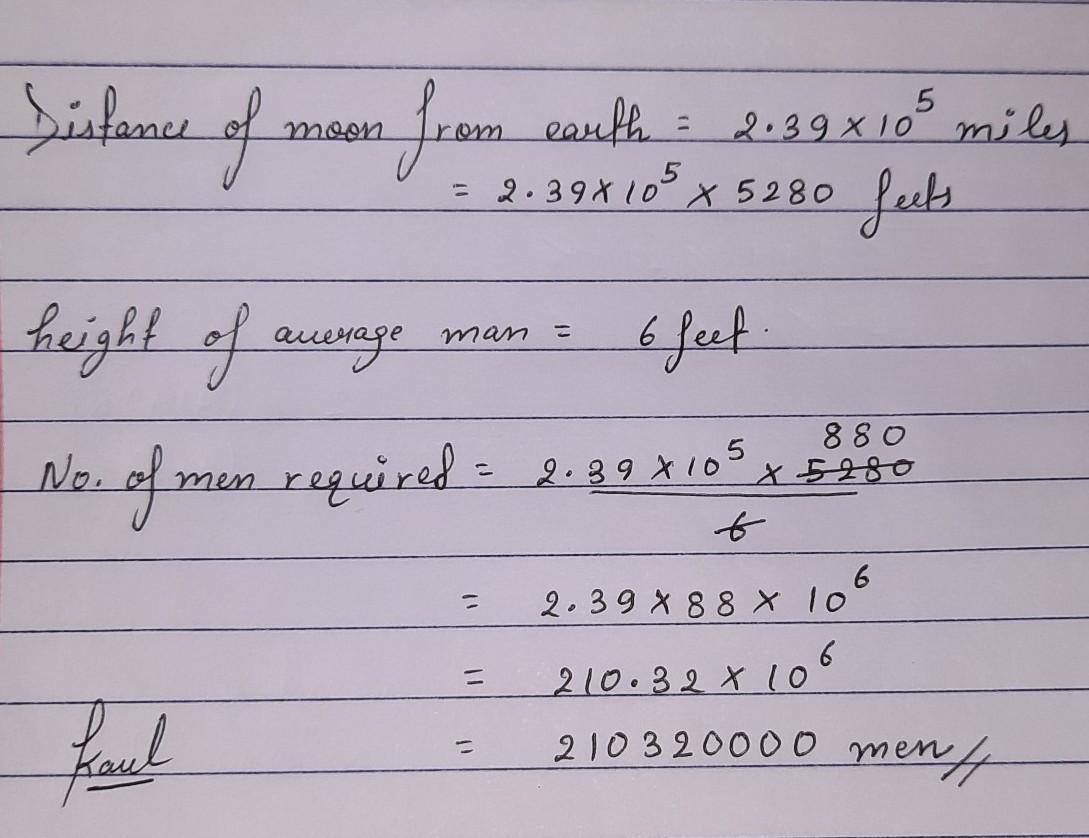 Distance of moon from earth = 2.39 × 10⁵ miles
= 2.39 × 10⁵ × 5280 feets
height of average man = 6 feet.
No. of men required = 2.39 × 10⁵ × 5280 880
6
= 2.39 × 88 × 10⁶
= 210.32 × 10⁶
= 210320000 men //
Kaul